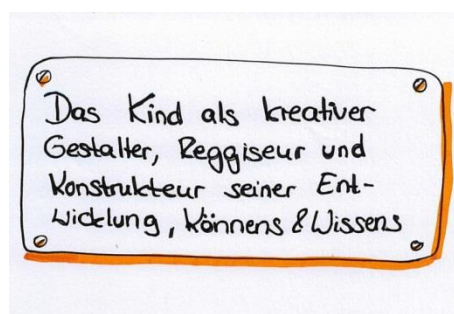 Das Kind als kreativer
Gestalter, Reggiseur und
Konstrukteur seiner Ent-
wicklung, Könnens & Wissens